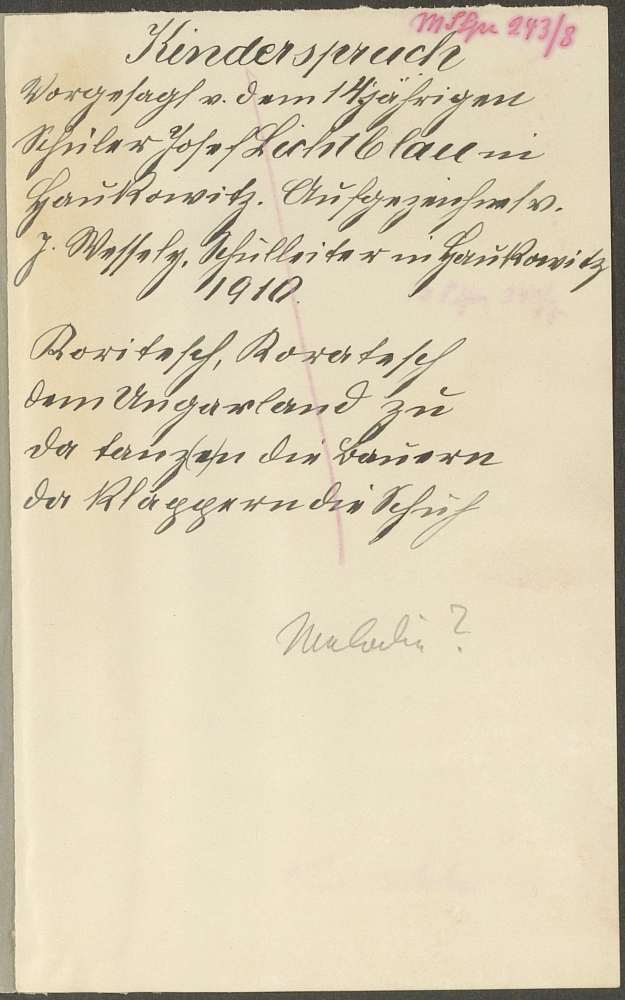 MSPu 243/8
Kinderspruch
Vorgesagt v. dem 14jährigen
Schüler Josef Lichtblau in
Haukowitz. Aufgezeichnet v.
J. Wessely, Schulleiter in Haukowitz
1910.
Roritesch, Roratesch
dem Ungarland zu
da tanz(e)n die Bauern
da klappern die Schuh
Melodie?